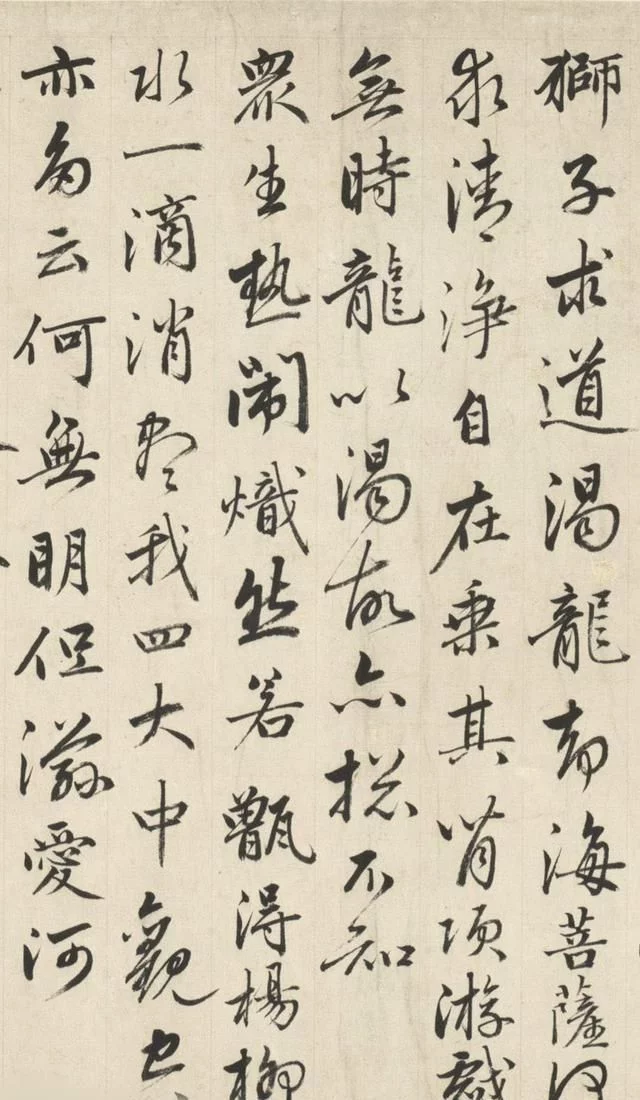 獅子求道渴龍海菩薩
求清淨自在乘其背項游戲
無時龍以渴故亦揔不知
衆生熱鬧熾然若甑得楊柳
水一滴消盡我四大中觀也
亦多云何無明但滋愛河